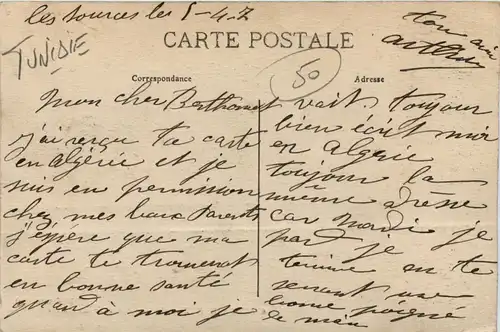 les sources le 5-4.7
ton ami
arthur
TUNISIE
CARTE POSTALE
50
Correspondance
Adresse
mon cher Berthomet
j'ai reçu ta carte
en algérie et je
suis en permission
chez mes beaux parents
j'éspére que ma
carte te trouverat
en bonne santé
quand à moi je
vait. toujour
bien écrit moi
en algerie
toujour la
même drésse
car mardi je
par je
termine en te
serant une
bonne poigné
de main